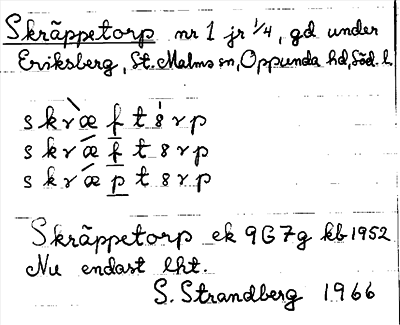 Skräppetorp nr 1 jr 1/4, gd under
Eriksberg, St. Malms sn, Oppunda hd, Söd. l.
s k r æ̀ f t 8́ r p
s k r ǽ f t 8 r p
s k r ǽ p t 8 r p
Skräppetorp ek 9G7g kb 1952
Nu endast lht.
S. Strandberg 1966